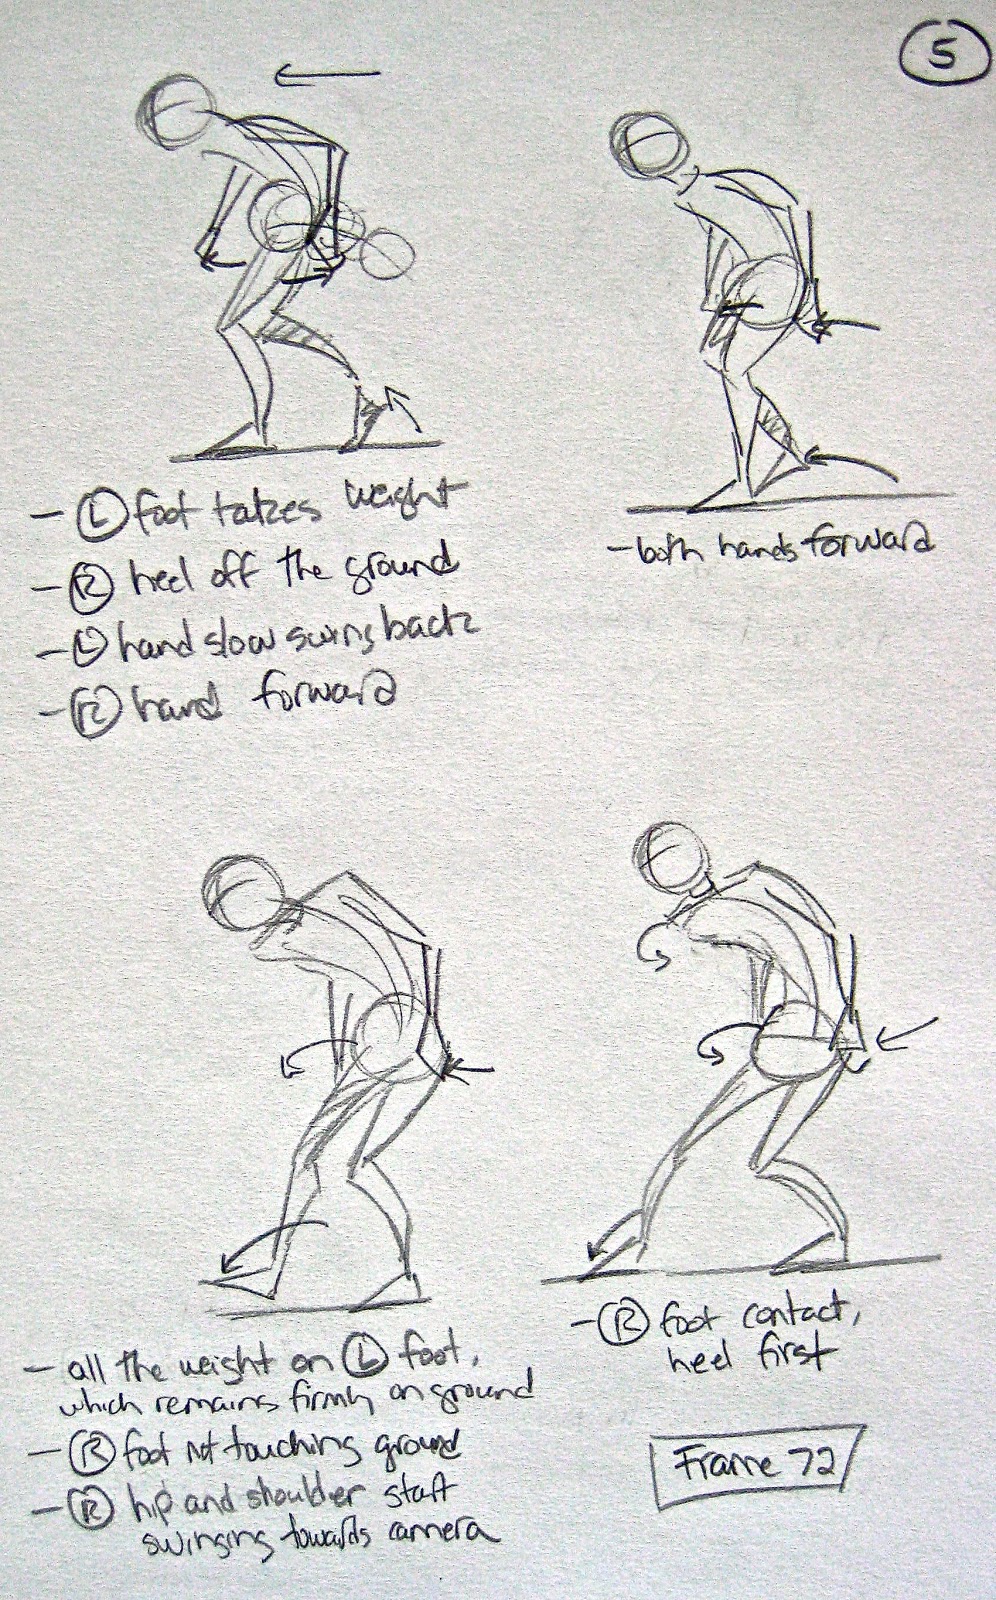 5
- Ⓛ foot takes weight
- Ⓡ heel off the ground
- Ⓛ hand slow swing back
- Ⓡ hand forward
- both hands forward
- all the weight on Ⓛ foot,
which remains firmly on ground
- Ⓡ foot not touching ground
- Ⓡ hip and shoulder start
swinging towards camera
- Ⓡ foot contact,
heel first
Frame 72